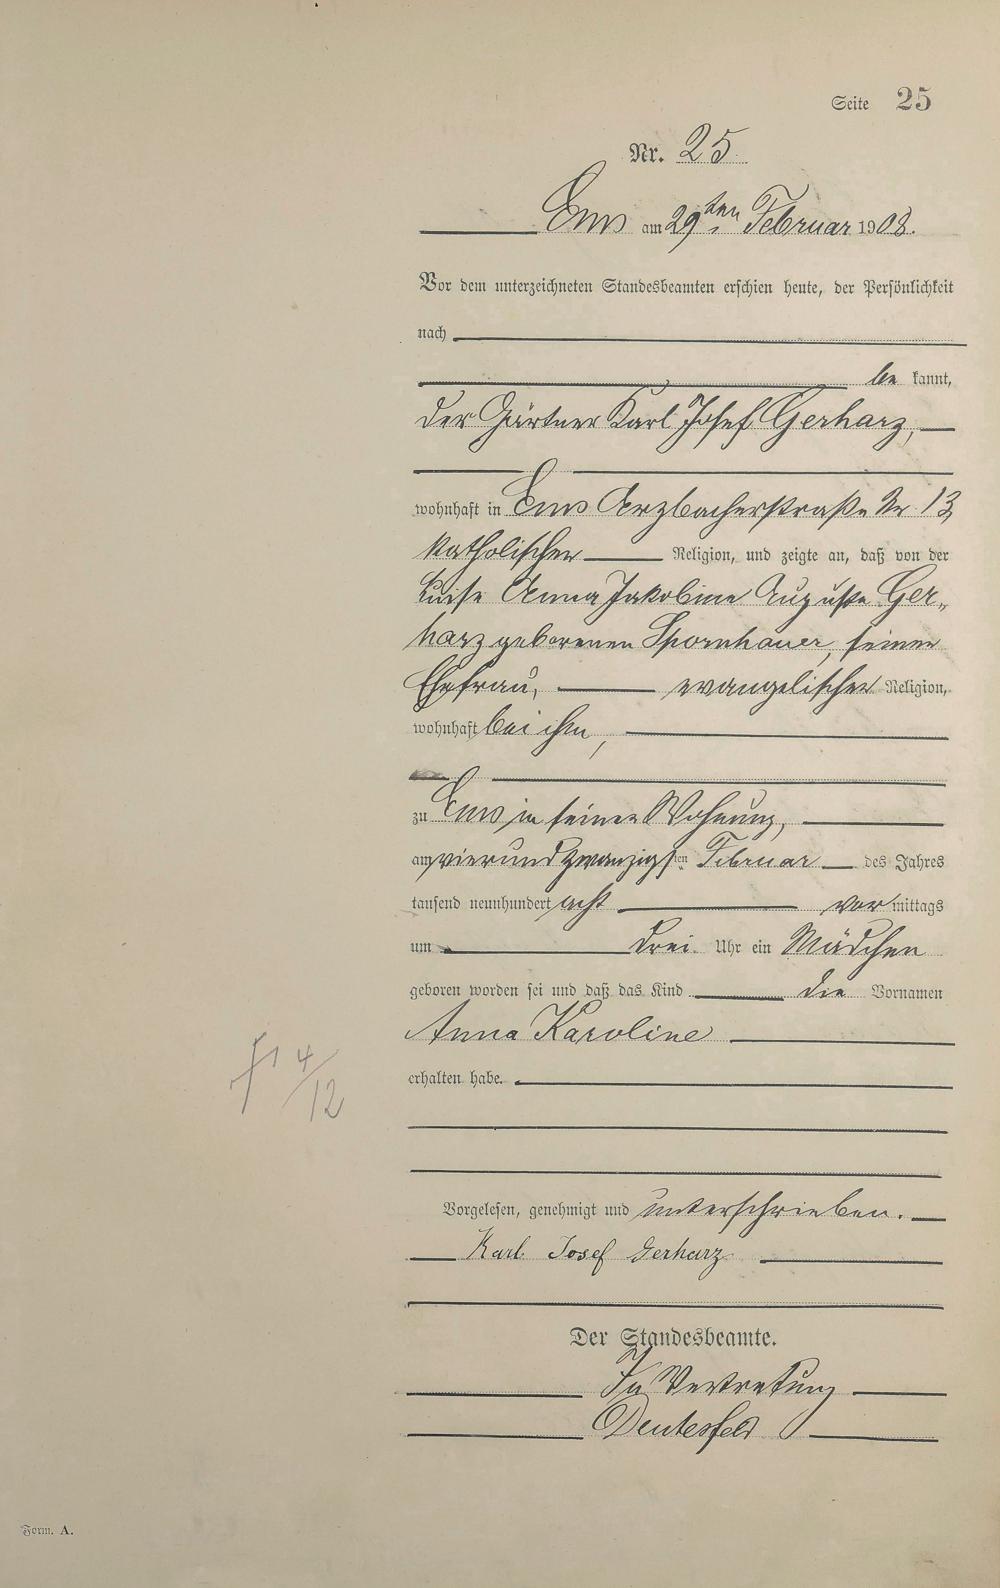 Seite 25
Nr. 25
Ems am 29ten Februar 1908.
Vor dem unterzeichneten Standesbeamten erschien heute, der Persönlichkeit
nach
be kannt,
der Gärtner Karl Josef Gerharz,
wohnhaft in Ems Arzbacherstraße Nr. 13
katholischer Religion, und zeigte an, daß von der
Luise Anna Jakobine Auguste Ger-
harz geborenen Spornhauer, seiner
Ehefrau, evangelischer Religion,
wohnhaft bei ihm,
zu Ems in seiner Wohnung,
am vierundzwanzigsten Februar des Jahres
tausend neunhundert acht vor mittags
um drei Uhr ein Mädchen
geboren worden sei und daß das Kind die Vornamen
Anna Karoline
erhalten habe.
4/12
Vorgelesen, genehmigt und unterschrieben.
Karl Josef Gerharz
Der Standesbeamte.
In Vertretung
Deutesfeld
Form. A.